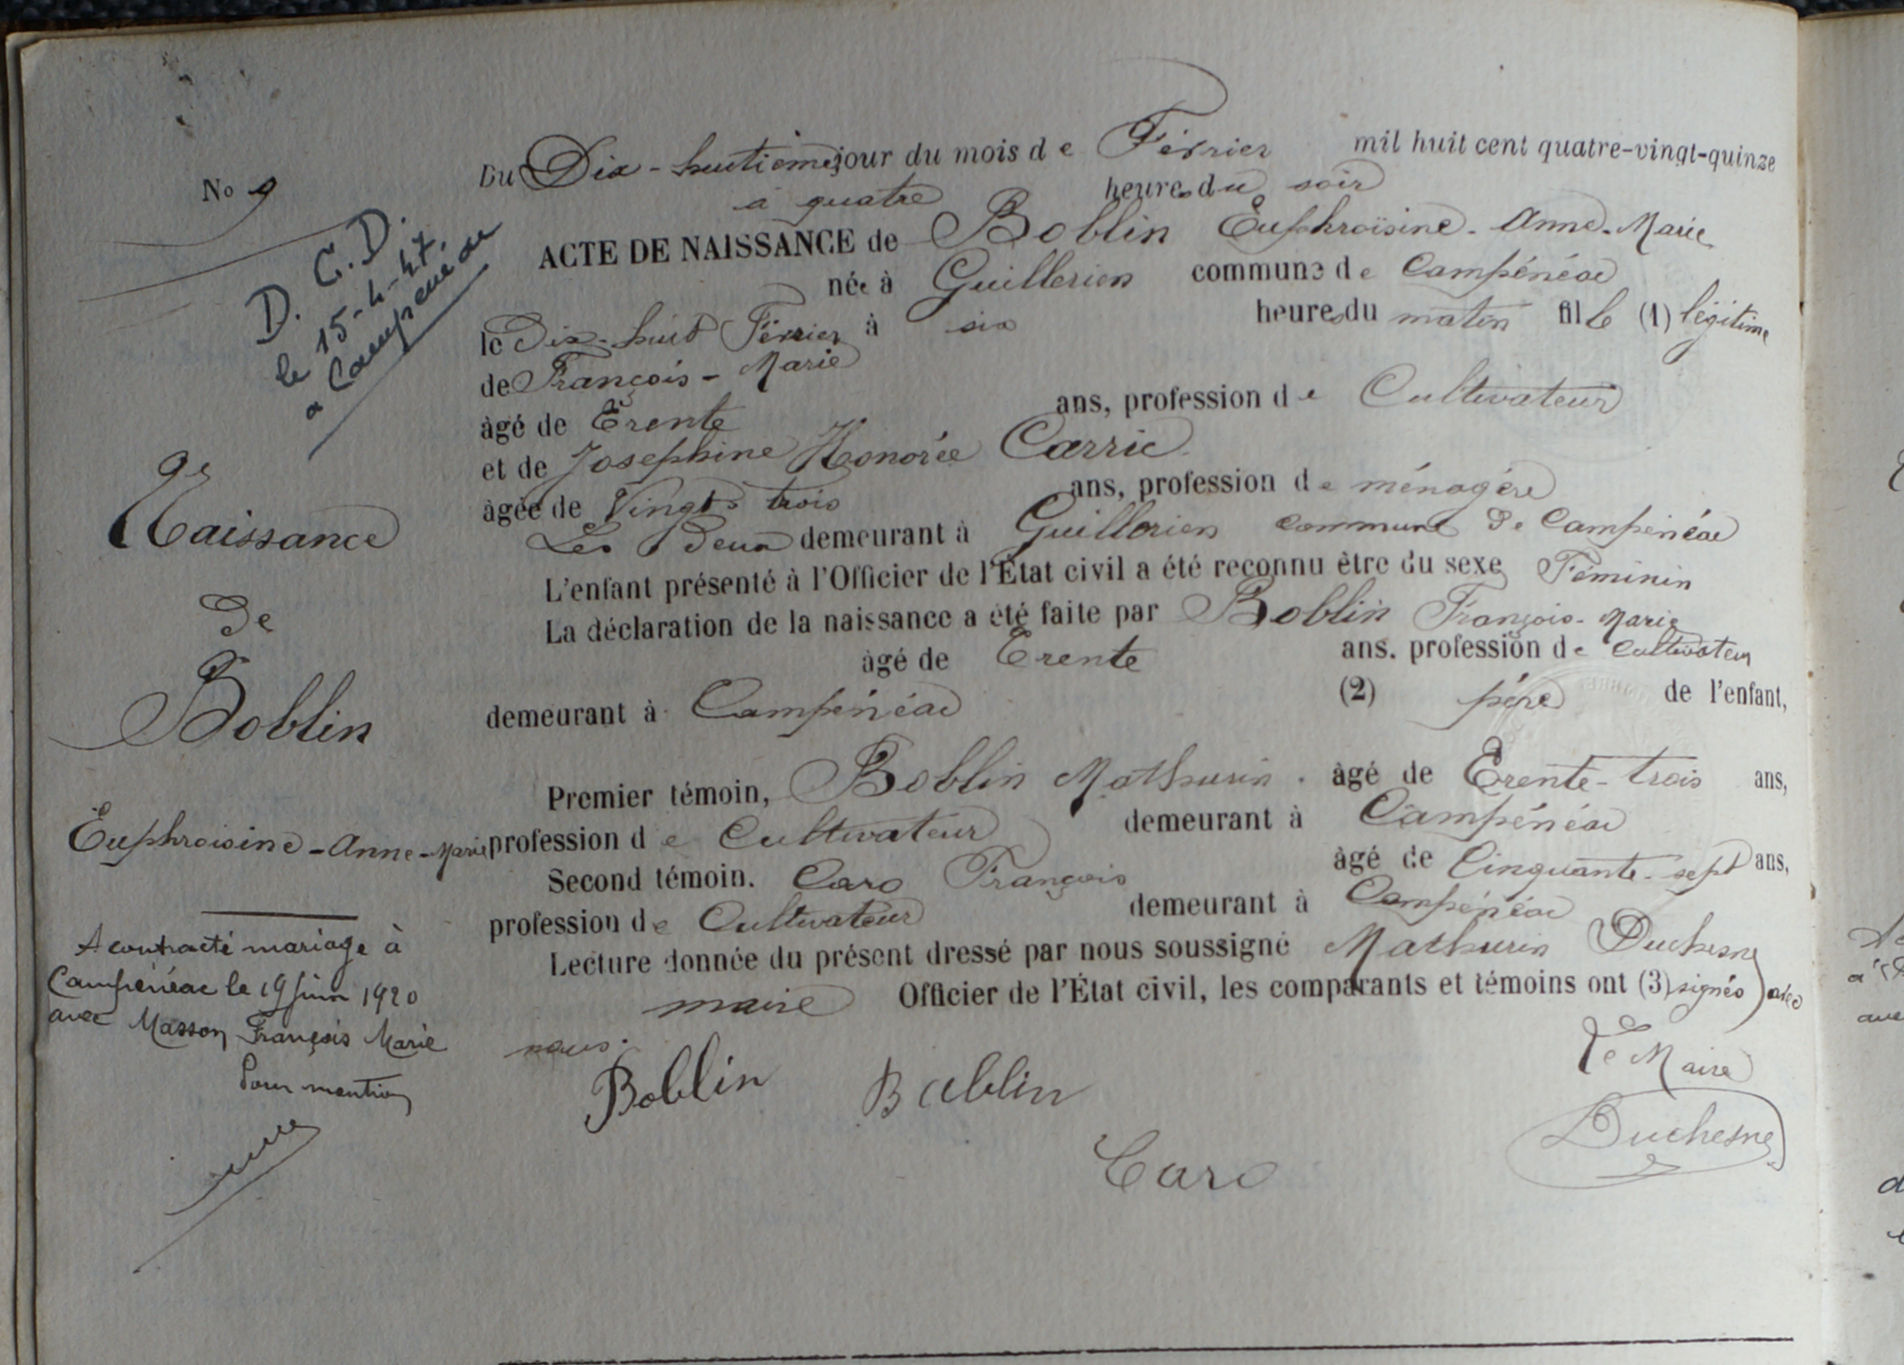 No 9
D. C. D.
le 15-4-47.
a Campeneac
Naissance
De
Boblin
Euphroisine-Anne-Marie
A contracté mariage à
Campénéac le 19 juin 1920
avec Masson François Marie
Pour mention
Du Dix-huitième jour du mois de Février mil huit cent quatre-vingt-quinze
à quatre heures du soir
ACTE DE NAISSANCE de Boblin Euphroisine-Anne-Marie
née à Guillerien commune de Campénéac
le Dix-huit Février à six heures du matin fille (1) légitime
de François-Marie
âgé de Trente ans, profession de Cultivateur
et de Josephine Honorée Carric
âgée de Vingt trois ans, profession de ménagère
Les Deux demeurant à Guillerien commune de Campénéac
L'enfant présenté à l'Officier de l'État civil a été reconnu être du sexe Féminin
La déclaration de la naissance a été faite par Boblin François-Marie
âgé de Trente ans. profession de Cultivateur
demeurant à Campénéac (2) père de l'enfant,
Premier témoin, Boblin Mathurin. âgé de Trente-trois ans,
profession de Cultivateur demeurant à Campénéac
Second témoin. Caro François âgé de Cinquante-sept ans,
profession de Cultivateur demeurant à Campénéac
Lecture donnée du présent dressé par nous soussigné Mathurin Duchesne
maire Officier de l'État civil, les comparants et témoins ont (3) signés avec
nous.
Boblin Boblin Le Maire
Caro Duchesne